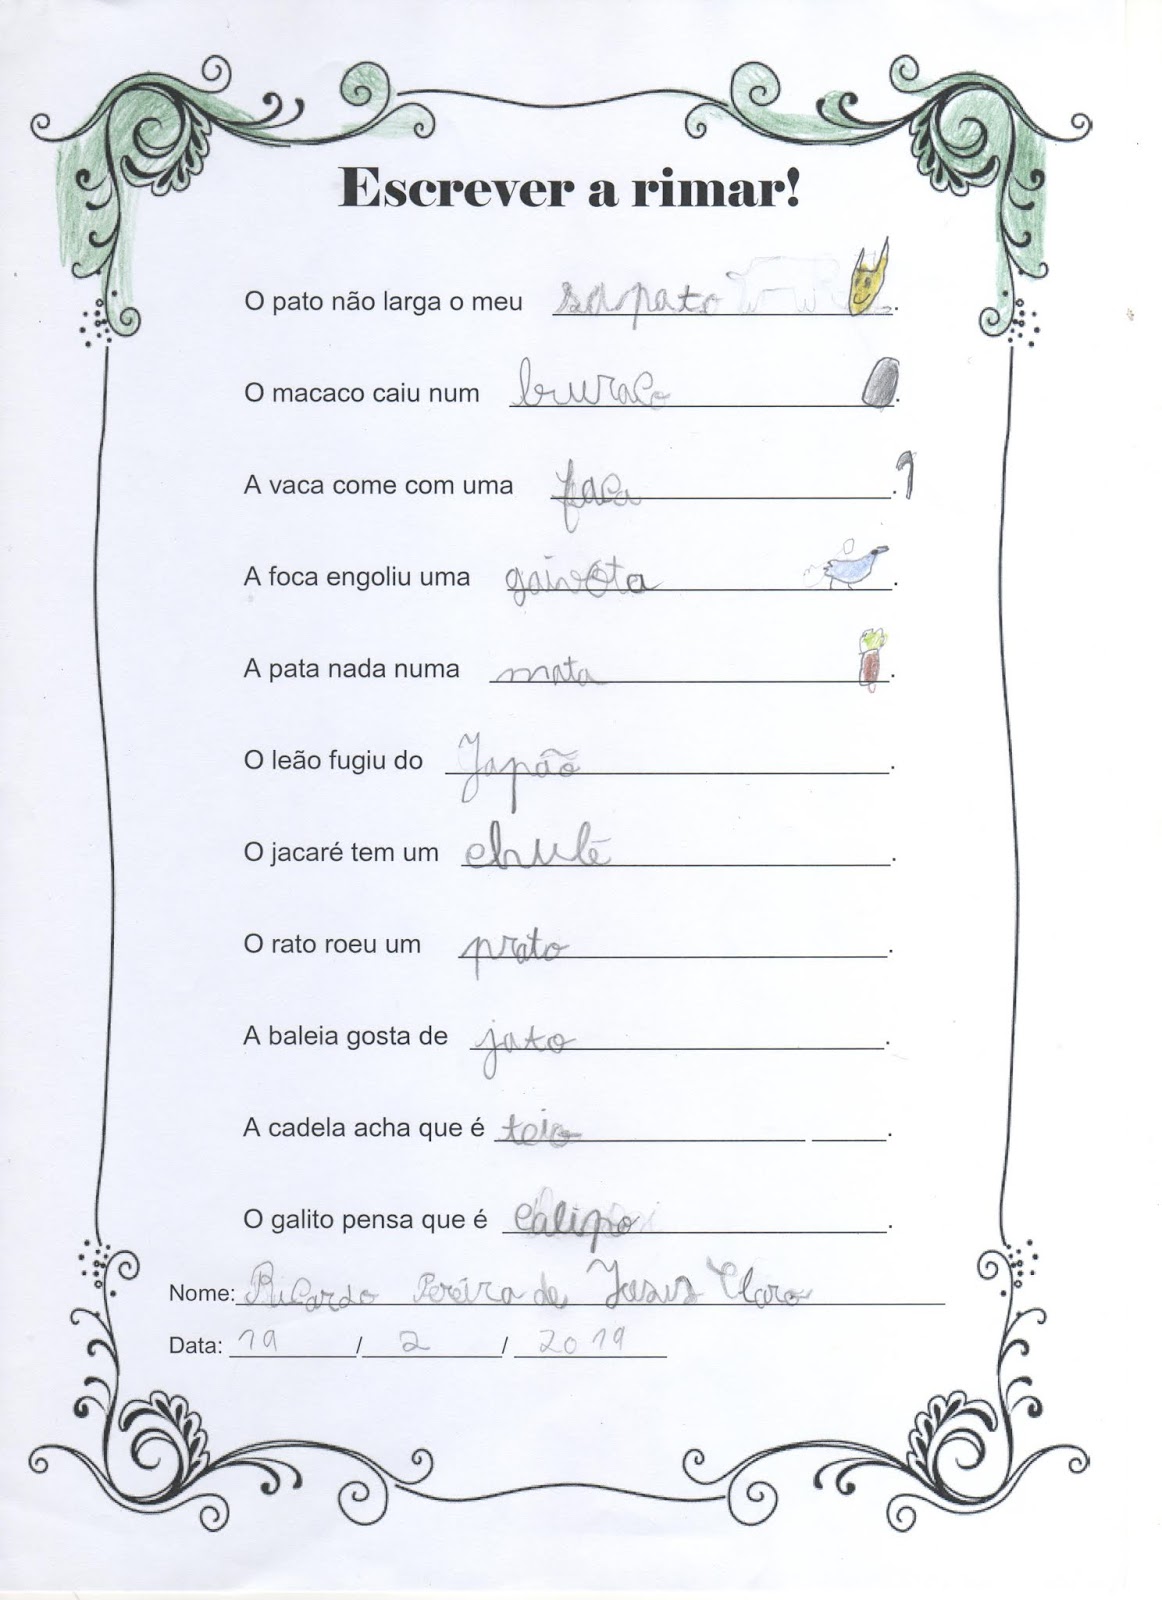 Escrever a rimar!
O pato não larga o meu sapato.
O macaco caiu num buraco.
A vaca come com uma faca.
A foca engoliu uma gaivota.
A pata nada numa mata.
O leão fugiu do Japão.
O jacaré tem um chulé.
O rato roeu um prato.
A baleia gosta de jato.
A cadela acha que é teio.
O galito pensa que é calipo.
Nome: Ricardo Pereira de Jesus Claro
Data: 19 / 2 / 2019